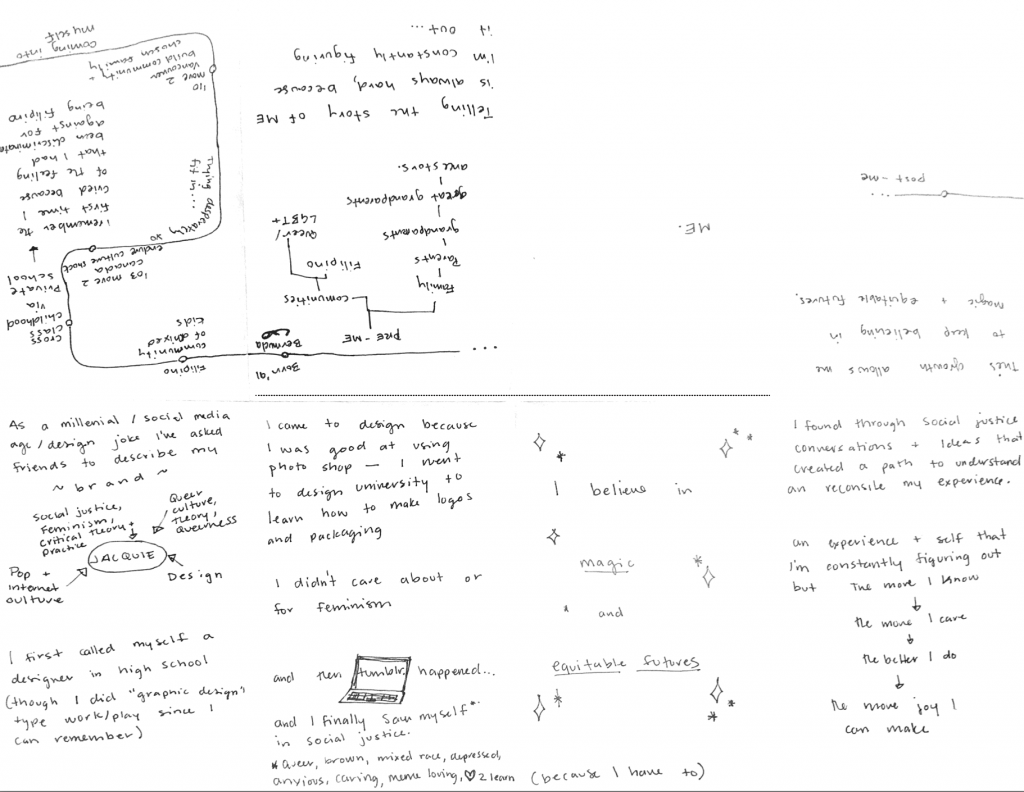 This growth allows me
to keep believing in
magic + equitable futures.
...
post-me
ME.
...
Born '91
Bermuda
PRE-ME
communities
Family
Filipino
Parents
Queer/
LGBT+
grandparents
great grandparents
ancestors.
Telling the story of ME
is always hard, because
I'm constantly figuring
it out...
Filipino
community
of mixed
kids
cross
class
childhood
via
Private
school
'03 move 2
canada
endure culture shock
I remember the
first time I
cried because
of the feeling
that I had
been discriminated
against for
being filipino
Trying desperately to
fit in...
'10
move 2
vancouver
build community +
chosen family
coming into
myself
As a millenial / social media
age / design joke I've asked
friends to describe my
~ brand ~
Social justice,
Feminism,
Critical theory +
practice
Queer
culture,
theory,
Queerness
JACQUIE
Pop +
internet
culture
Design
I first called myself a
designer in high school
(though I did "graphic design"
type work/play since I
can remember)
I came to design because
I was good at using
photo shop — I went
to design university to
learn how to make logos
and packaging
I didn't care about or
for feminism
and then tumblr. happened...
and I finally saw myself*
in social justice.
* Queer, brown, mixed race, depressed,
anxious, caring, meme loving, ♡ 2 learn (because I have to)
I believe in
magic
and
equitable futures
I found through social justice
conversations + ideas that
created a path to understand
an reconsile my experience.
an experience + self that
I'm constantly figuring out
but The more I know
the more I care
the better I do
the more joy I
can make